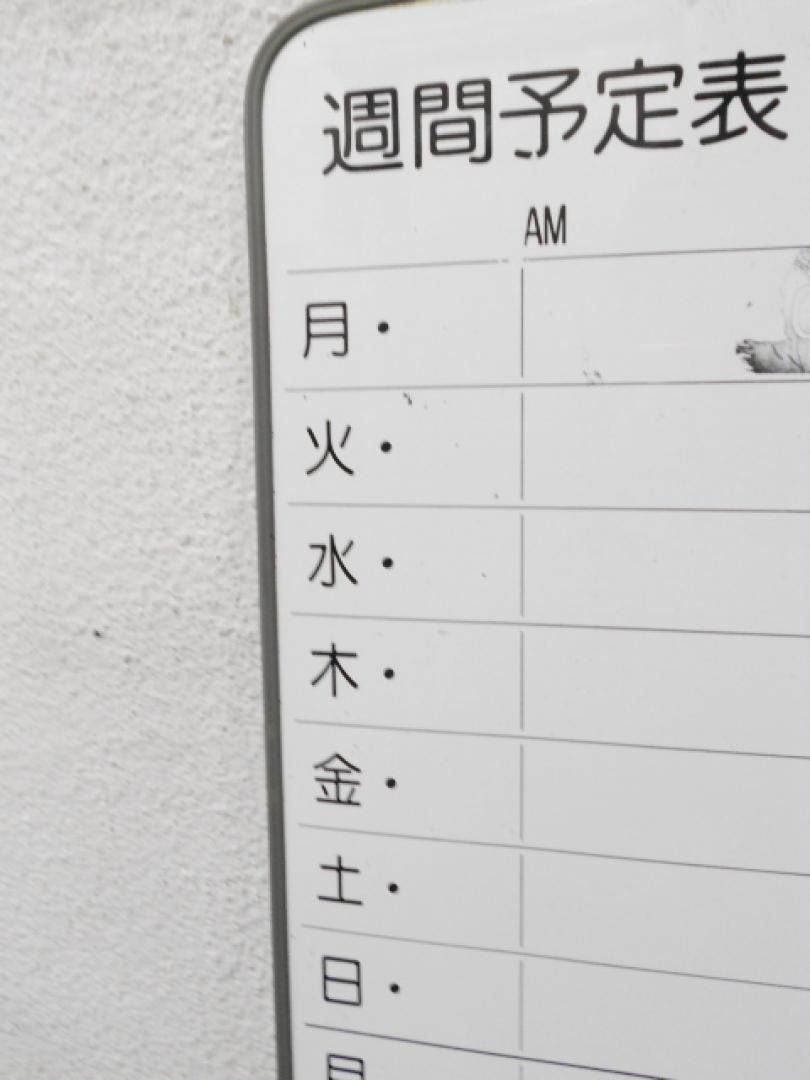 週間予定表
AM
月・
火・
水・
木・
金・
土・
日・